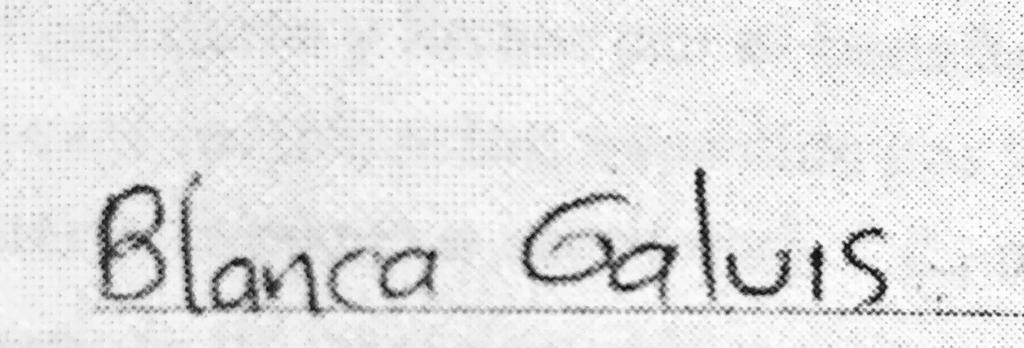 Blanca Galuis